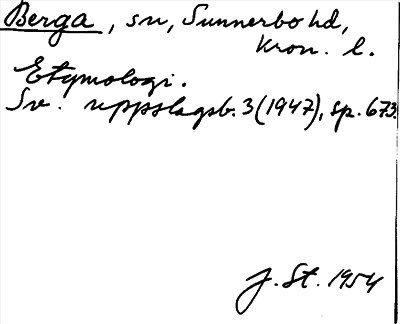 Berga, sn, Sunnerbo hd,
Kron. l.
Etymologi.
Sv. uppslagsb. 3 (1947), sp. 673.
J. St. 1954